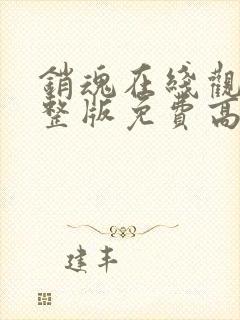 銷魂在綫觀
整版免費高
建丰